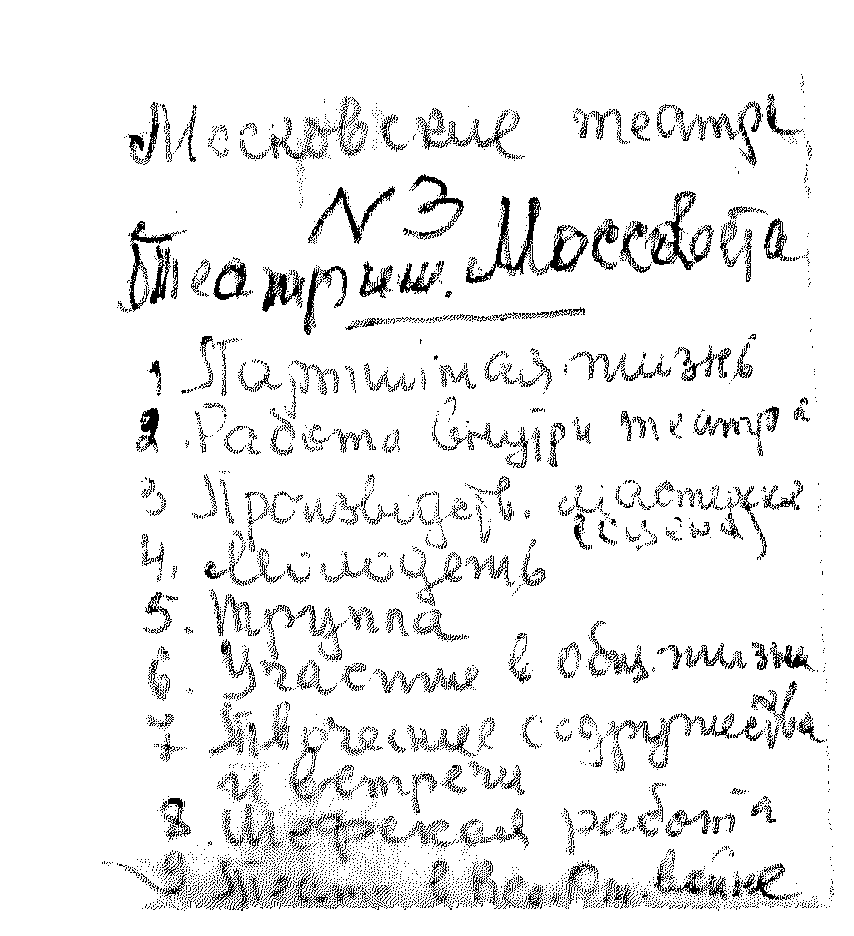 Московские театры
N 3
Театр им. Моссовета
1 Партийная жизнь
2. Работа внутри театра
3 Производств. мастерская
(сцена)
4. Молодежь
5. Труппа
6. Участие в общ. жизни
7 Творческие содружества
и встречи
8. Шефская работа
9 Театр в Вел. От. войне